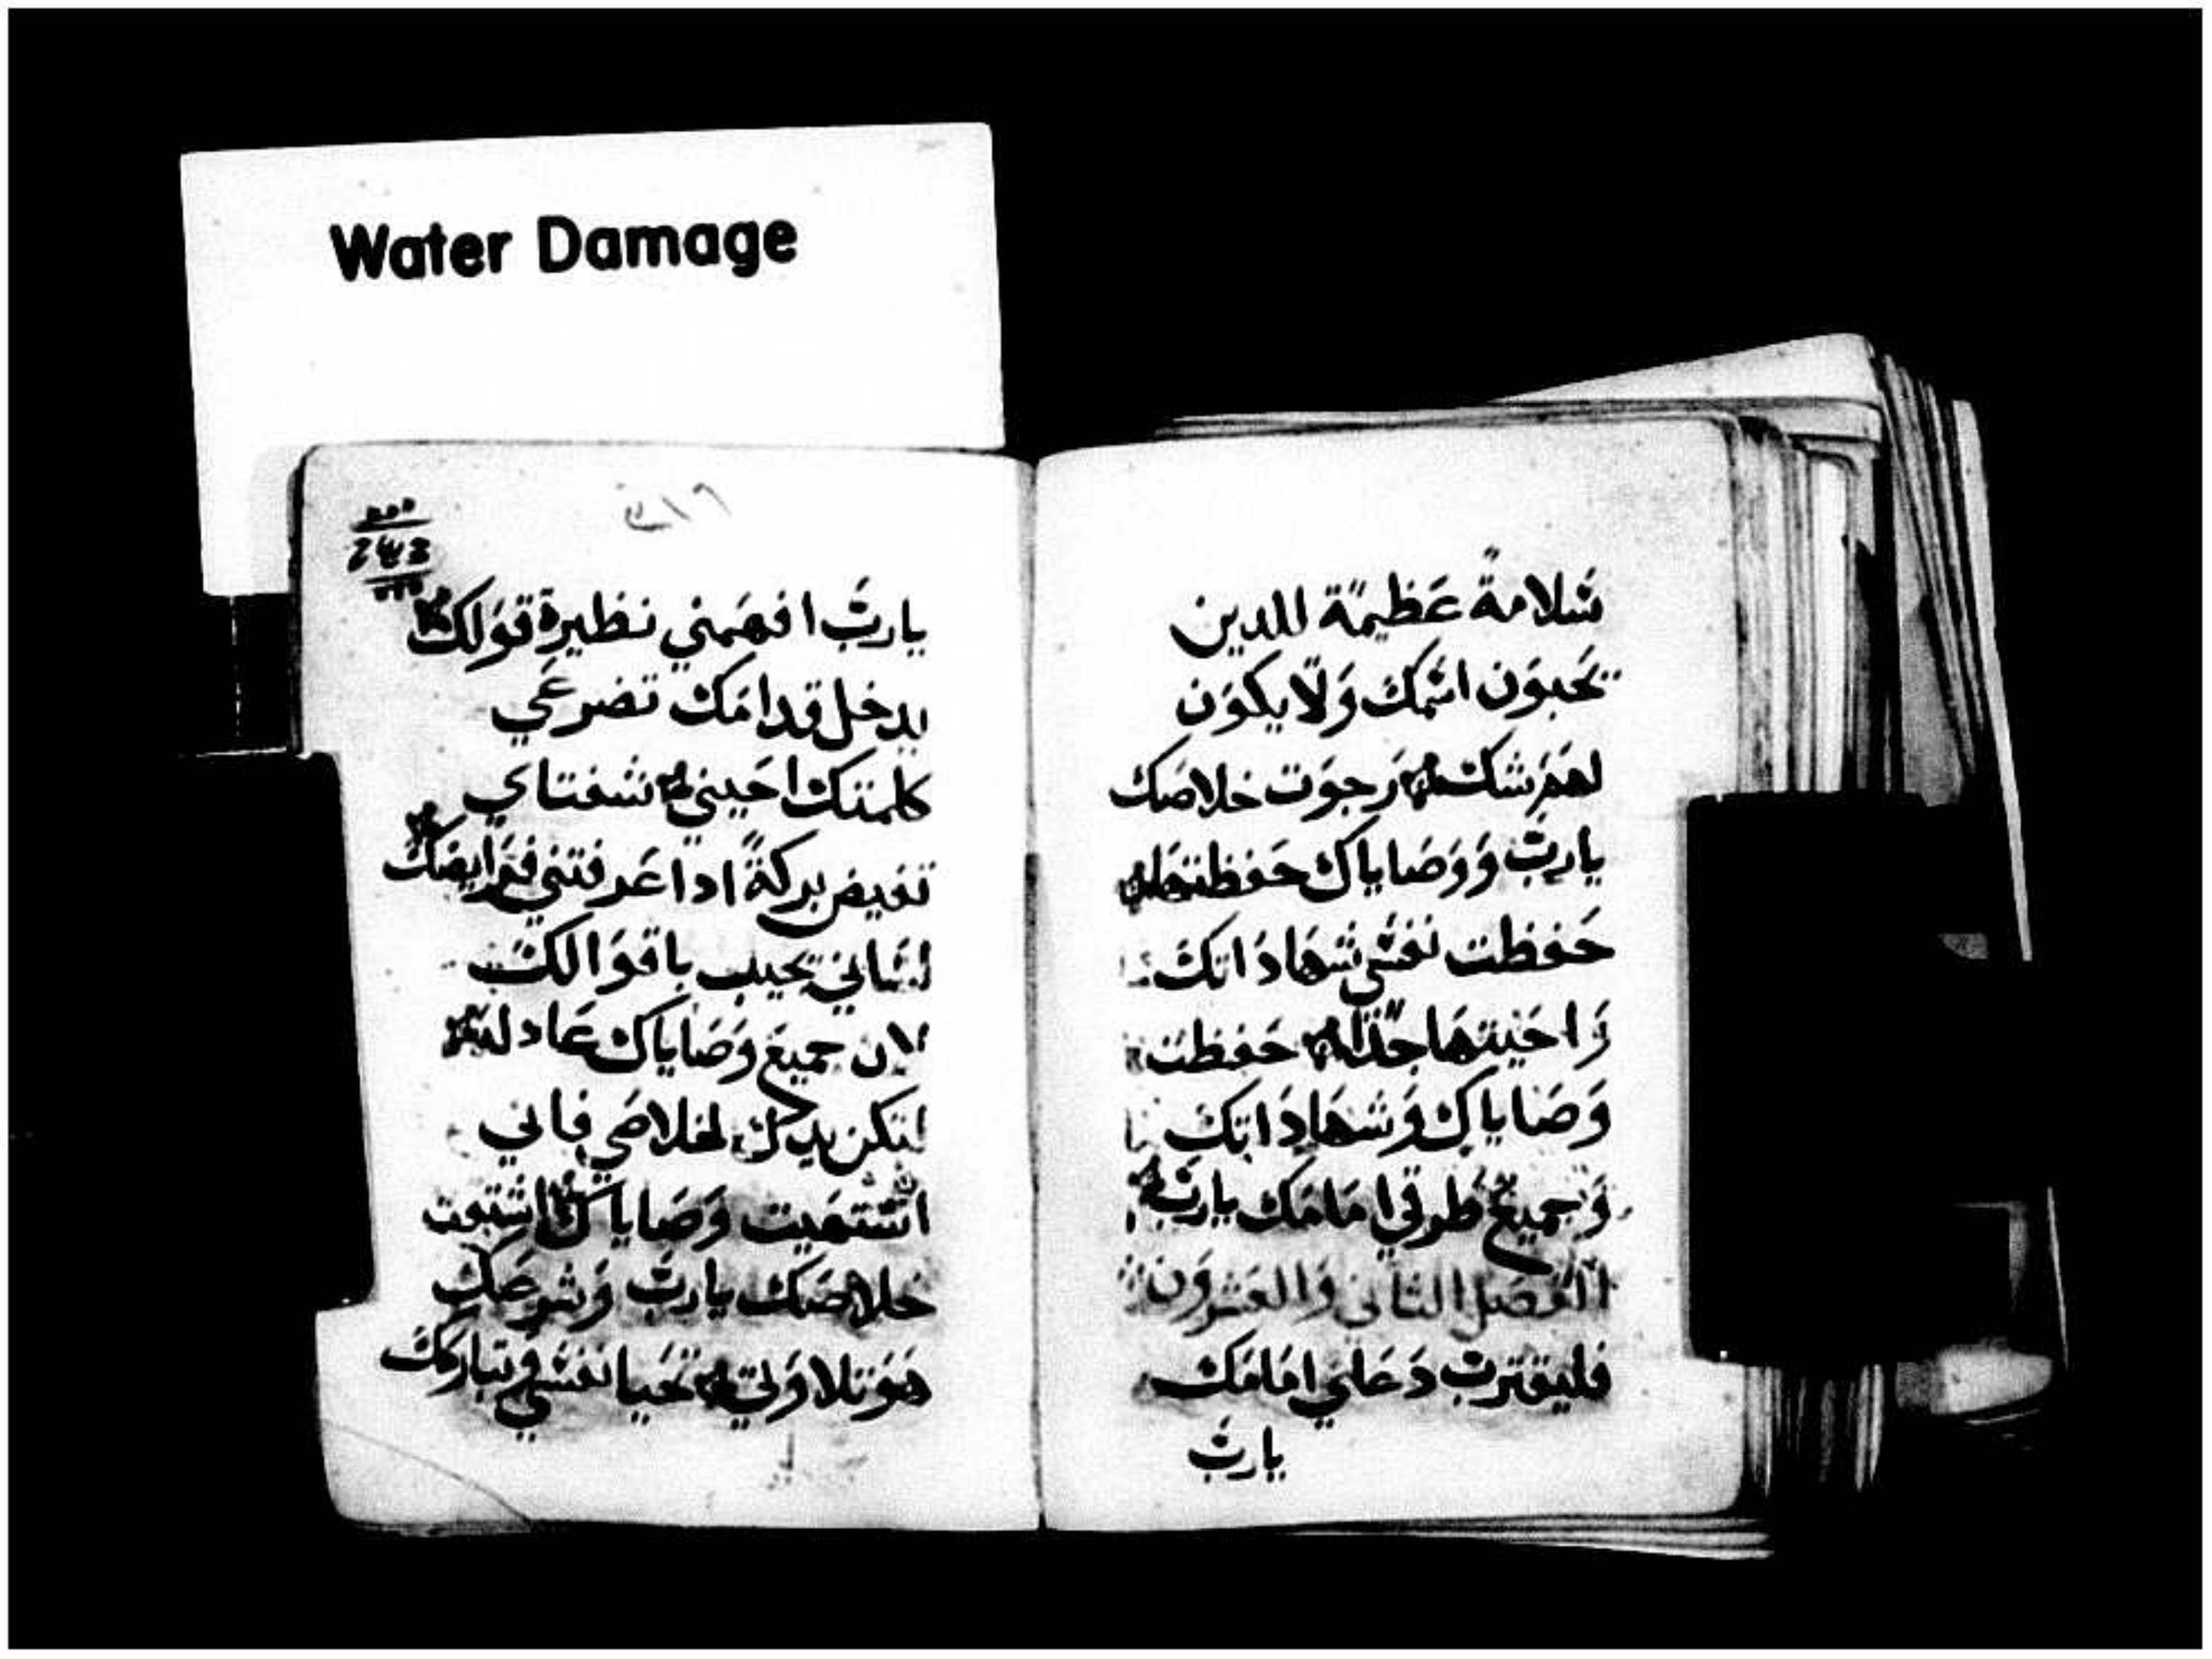 Water Damage
سَلامةً عَظيمَة للدين
يحَبوَن اسَمكَ وَلَا يكوَن
لهمَ شَك رَجوَت خلاصَك
يارَبّ وَوَصَاياك حَفظتهَا
حَفظت نفسَي شهَادَاتكَ
وَاحَببتهَا جدًا حَفظت
وَصَاياك وَشهَادَاتكَ
وَجميعَ طرقي امَامَك يارَبّ
الفصَل الثاني وَالعشرَون
فليقترب دعَاي امَامَك
يارَبّ
٢١٩
يارَبّ افهَمني نظيرة قوَلك
يدخل قدامَك تضرعَي
كلمتك احَيني شفتاي
تفيض بركةً ادا عَرفتني فرَايضك
لسَاني يجيب باقوَالك
لان جميعَ وَصَاياك عَادله
لتكن يدك لخلاصَي فاني
اشتهَيت وَصَاياك اشتهيت
خلاصَك يارَبّ وَشرعَك
هوَ تلاوَتي تحَيا نفسَي وَتبارَكك